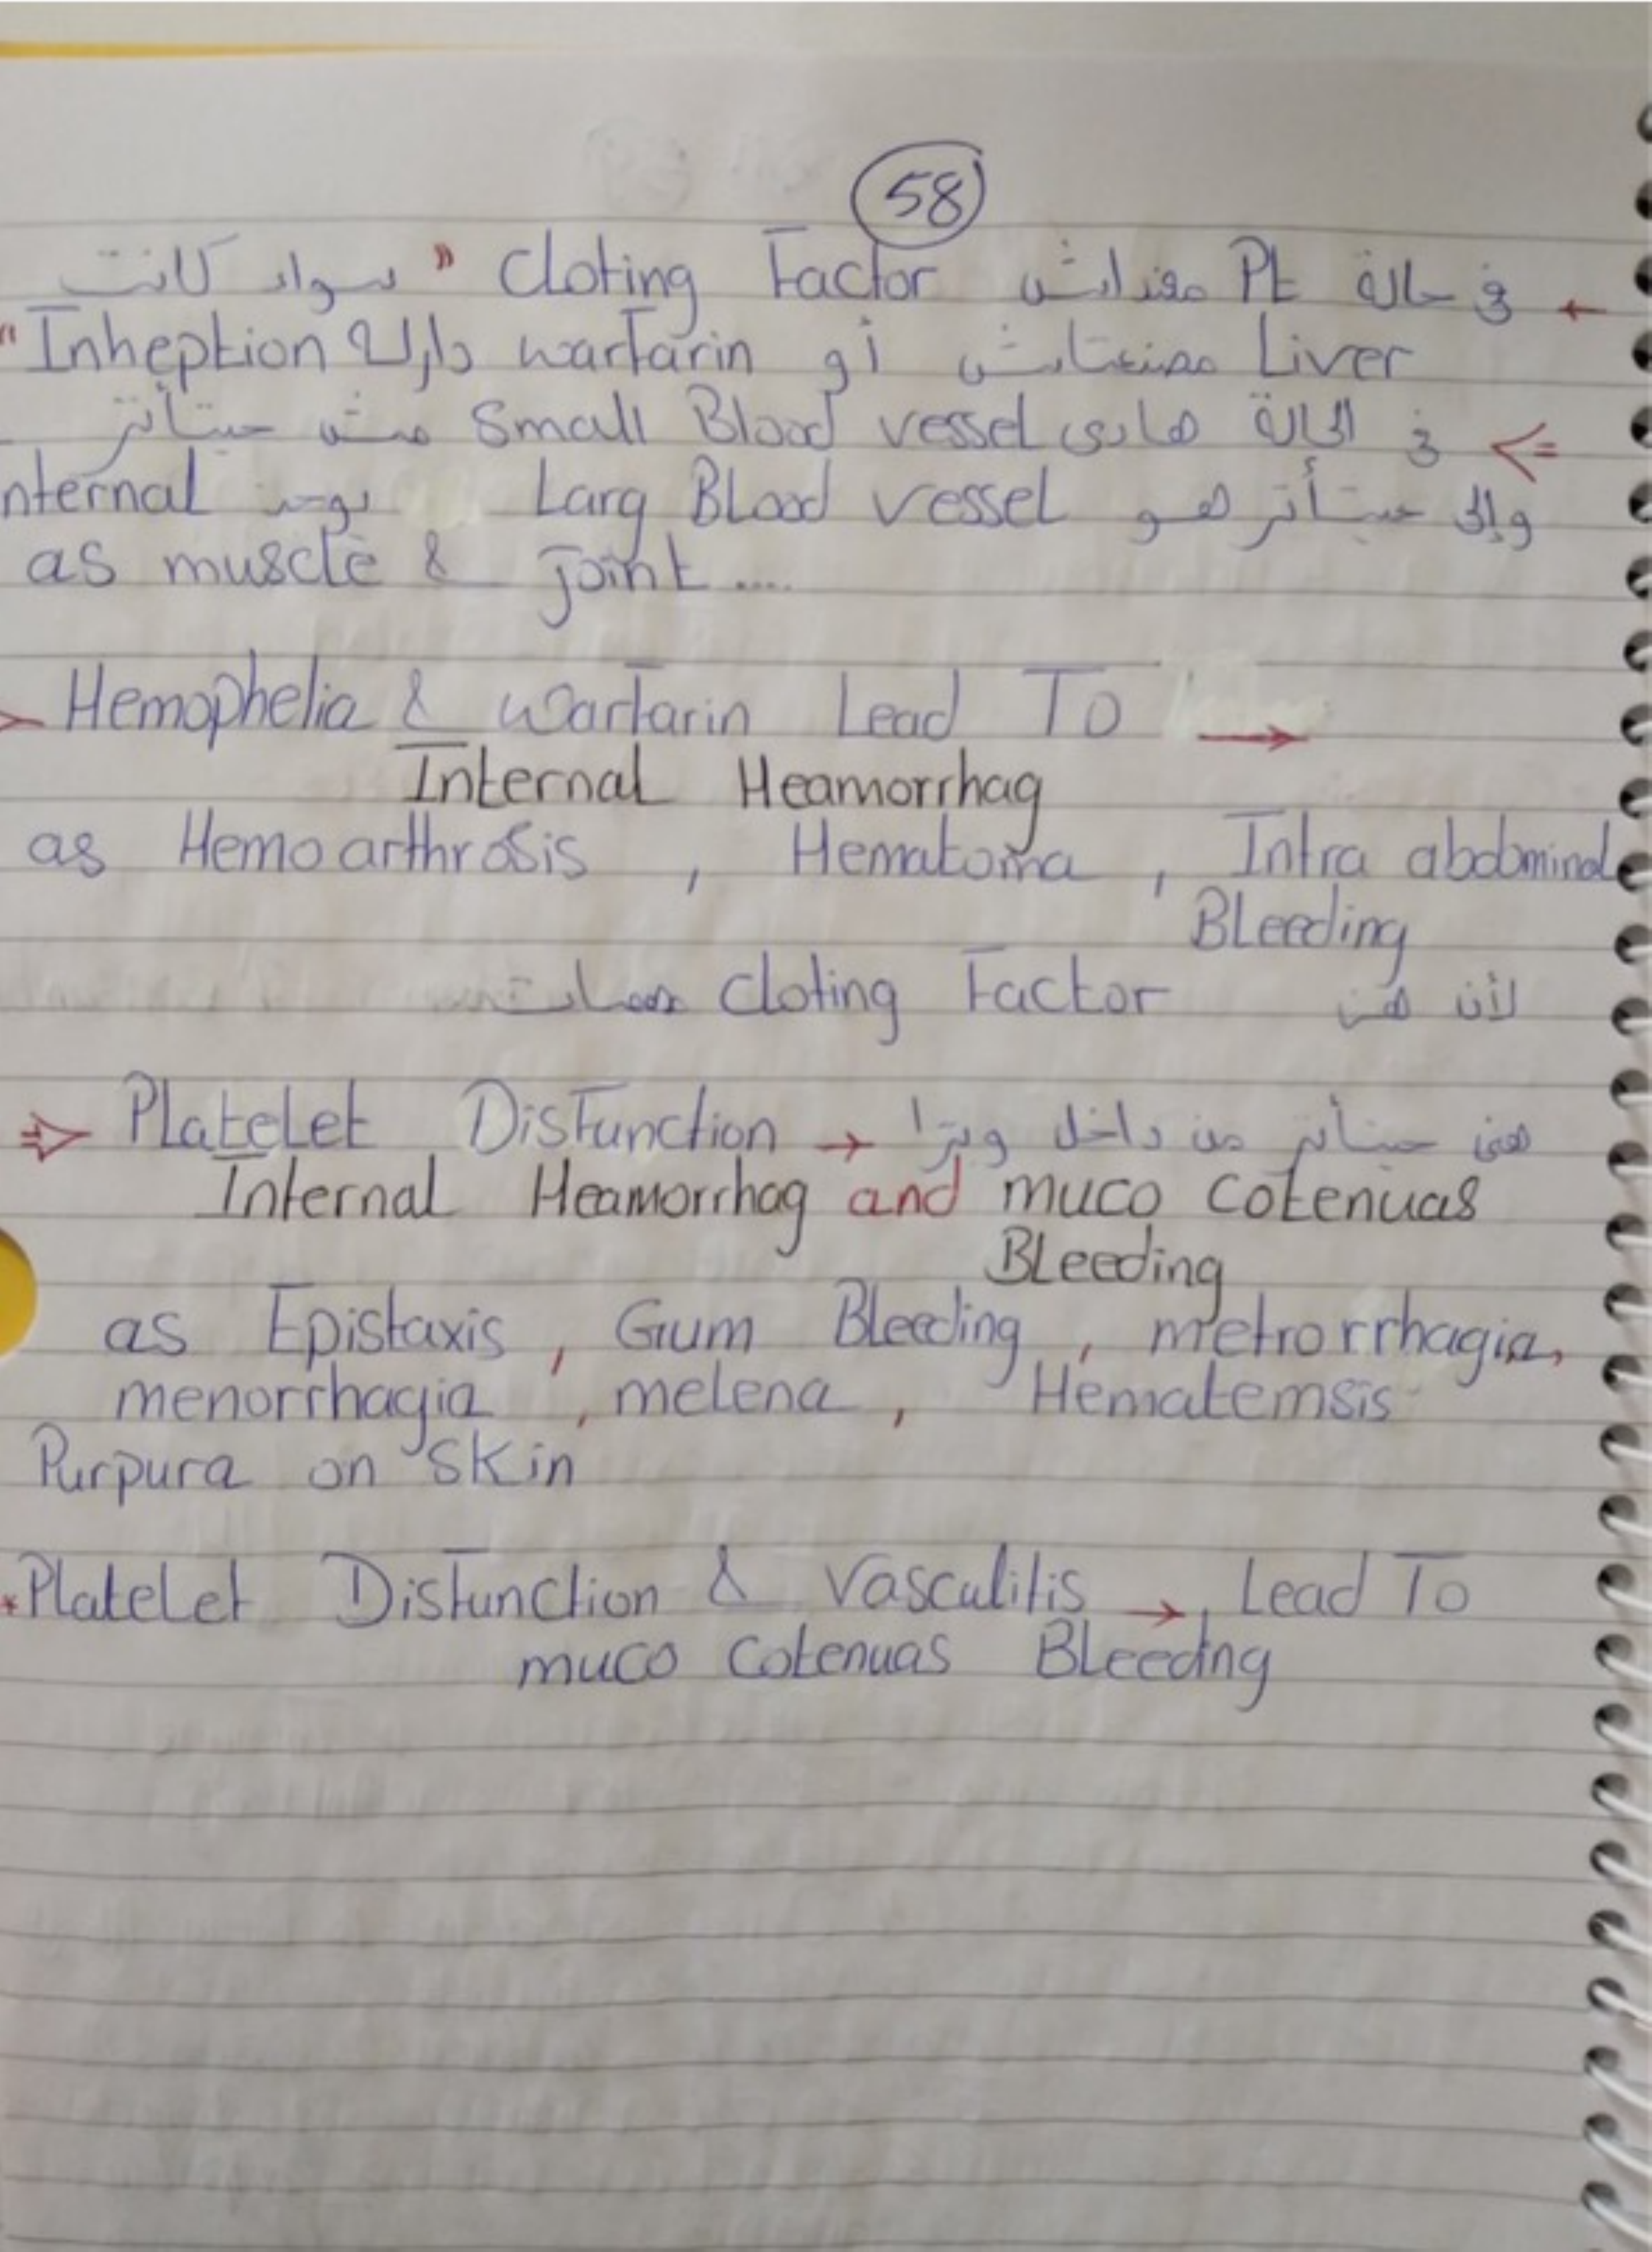 58
في حالة Pt معندلش Cloting Factor " سواء كانت
Liver مصنعتش أو warfarin دارله Inheption "
في الحالة هادى Small Blood vessel مش حيتأثر
وإلى حيتأثر هو Larg Blood vessel يوجد nternal
as muscle & joint ....
Hemophelia & warfarin Lead To →
Internal Heamorrhag
as Hemoarthrosis , Hematoma , Intra abdominal
Bleeding
لأن هن Cloting Factor
⇒ Platelet Disfunction → هنى حيتأثر من داخل وبرا
Internal Heamorrhag and muco Cotenuas
Bleeding
as Epistaxis , Gum Bleeding , metrorrhagia,
menorrhagia , melena , Hematemsis
Purpura on Skin
*Platelet Disfunction & Vasculitis → Lead To
muco Cotenuas Bleedng